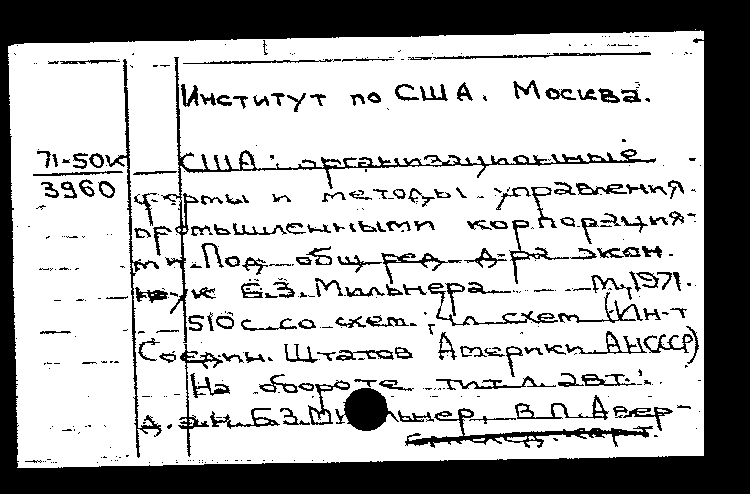 Институт по США. Москва.
71-50к
3960
США: организационные
формы и методы управления
промышленными корпорация-
ми. Под общ ред д-ра экон.
наук Б.З.Мильнера. М.,1971.
510с. со схем.; 4л схем (Ин-т
Соедин. Штатов Америки АНСССР)
На обороте тит.л. авт.:
д.э.н. Б.З.Мильнер, В.П.Авер-
след. карт.